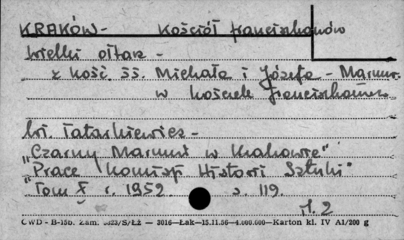 KRAKÓW - Kościół franciszkanów
wielki ołtarz -
z kość. śś. Michała i Józefa - Marmur.
w kościele franciszkanów
Wł. Tatarkiewicz -
"Czarny Marmur w Krakowie"
"Prace Komisji Historii Sztuki"
"Tom X r. 1952 s. 119.
il. 2
CWD - B-15b. Zam. 5023/S/Łż - 3016-Łak-15.11.56-4.000.000-Karton kl. IV A1/200 g